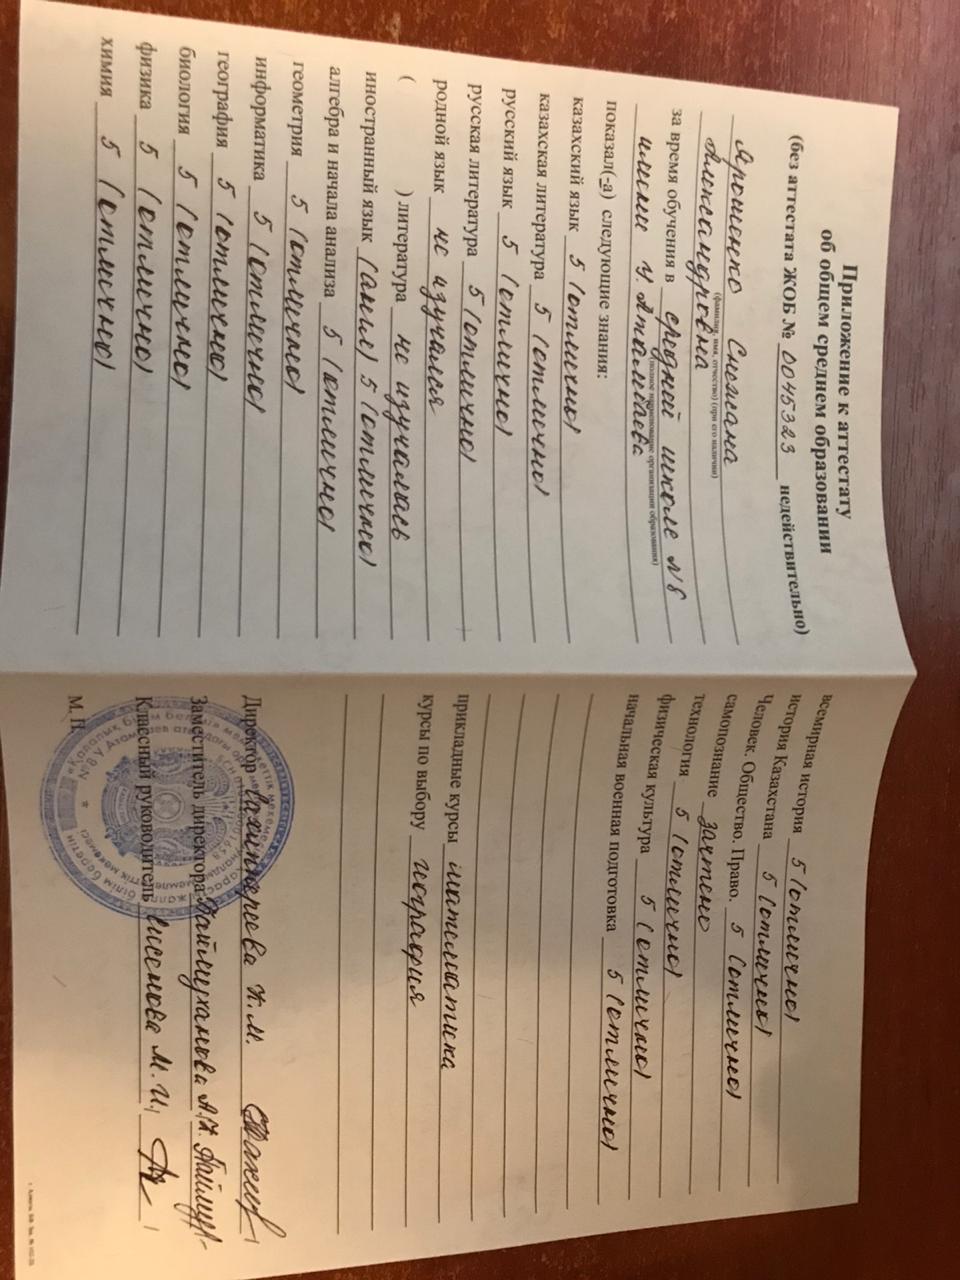 Приложение к аттестату
об общем среднем образовании
(без аттестата ЖОБ № 0045323 недействительно)
Ярошенко Снежана
(фамилия, имя, отчество) (при его наличии)
Александровна
за время обучения в средней школе №8
(полное наименование организации образования)
имени У. Атамбаева
показал(-а) следующие знания:
казахский язык 5 (отлично)
казахская литература 5 (отлично)
русский язык 5 (отлично)
русская литература 5 (отлично)
родной язык не изучался
( ) литература не изучалась
иностранный язык (англ) 5 (отлично)
алгебра и начала анализа 5 (отлично)
геометрия 5 (отлично)
информатика 5 (отлично)
география 5 (отлично)
биология 5 (отлично)
физика 5 (отлично)
химия 5 (отлично)
всемирная история 5 (отлично)
история Казахстана 5 (отлично)
Человек. Общество. Право. 5 (отлично)
самопознание зачтено
технология 5 (отлично)
физическая культура 5 (отлично)
начальная военная подготовка 5 (отлично)
прикладные курсы математика
курсы по выбору география
Директор К.М.
Заместитель директора Наймуханова А.К.
Классный руководитель М.И.
М. П.